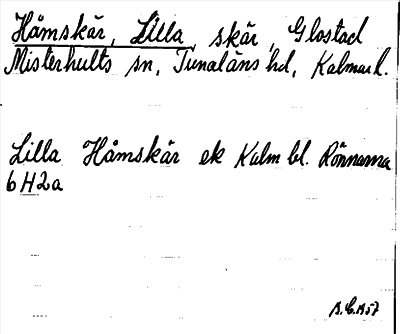 Håmskär, Lilla, skär, Glostad
Misterhults sn, Tunaläns hd, Kalmar l.
Lilla Håmskär ek Kalm bl. Rönnarna
6H2a